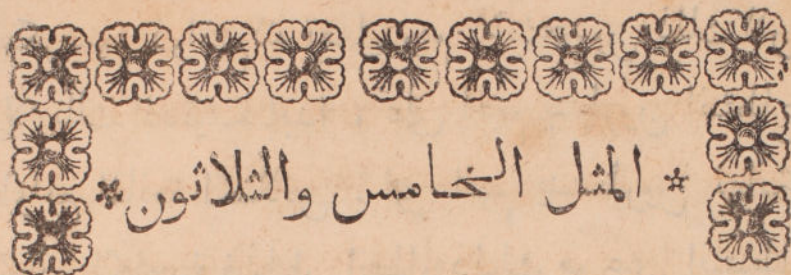 * المثل الخامس والثلاثون *